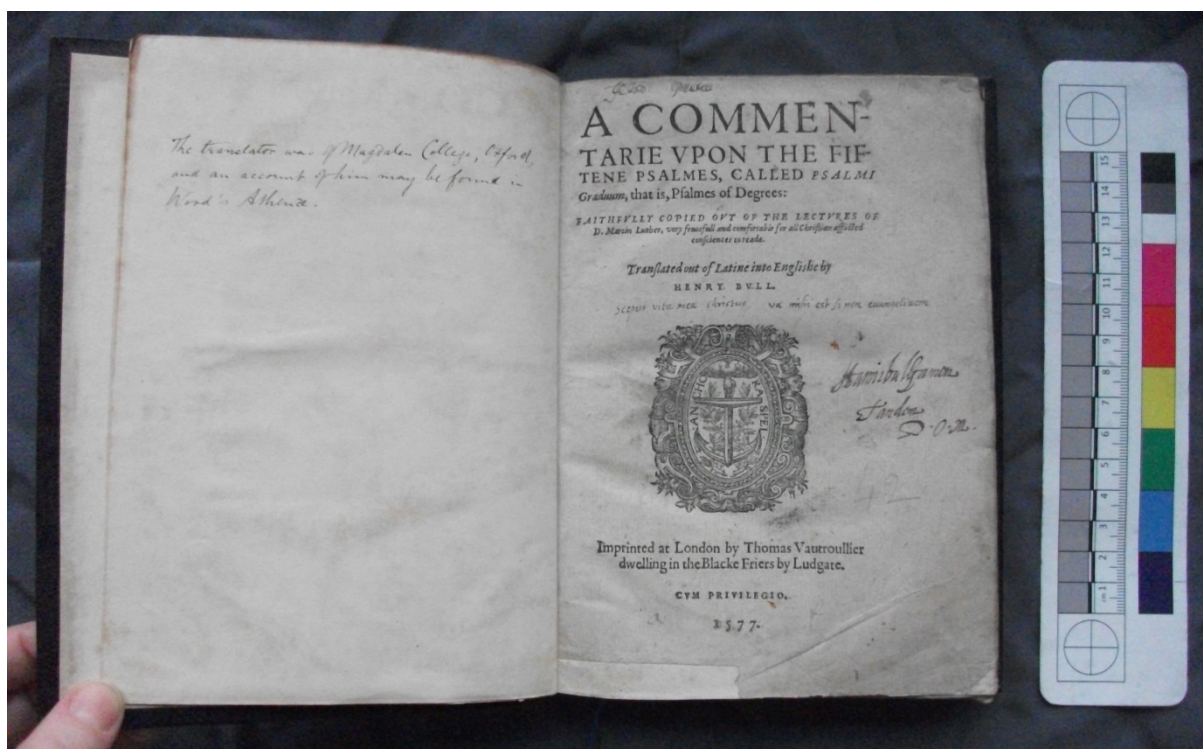 The translator was of Magdalen College, Oxford,
and an account of him may be found in
Wood's Athenæ.
A COMMEN-
TARIE VPON THE FIF-
TENE PSALMES, CALLED PSALMI
Graduum, that is, Psalmes of Degrees:
FAITHFVLLY COPIED OVT OF THE LECTVRES OF
D. Martin Luther, very frutefull and comfortable for all Christian afflicted
consciences to reade.
Translated out of Latine into Englishe by
HENRY BVLL.
vita mea christus væ mihi est si non
ANCHORA SPEI
Hannibal Gamon
D. O. M.
42
Imprinted at London by Thomas Vautroullier
dwelling in the Blacke Friers by Ludgate.
CVM PRIVILEGIO.
1577.
15
14
13
12
11
10
9
8
7
6
5
4
3
2
cm 1